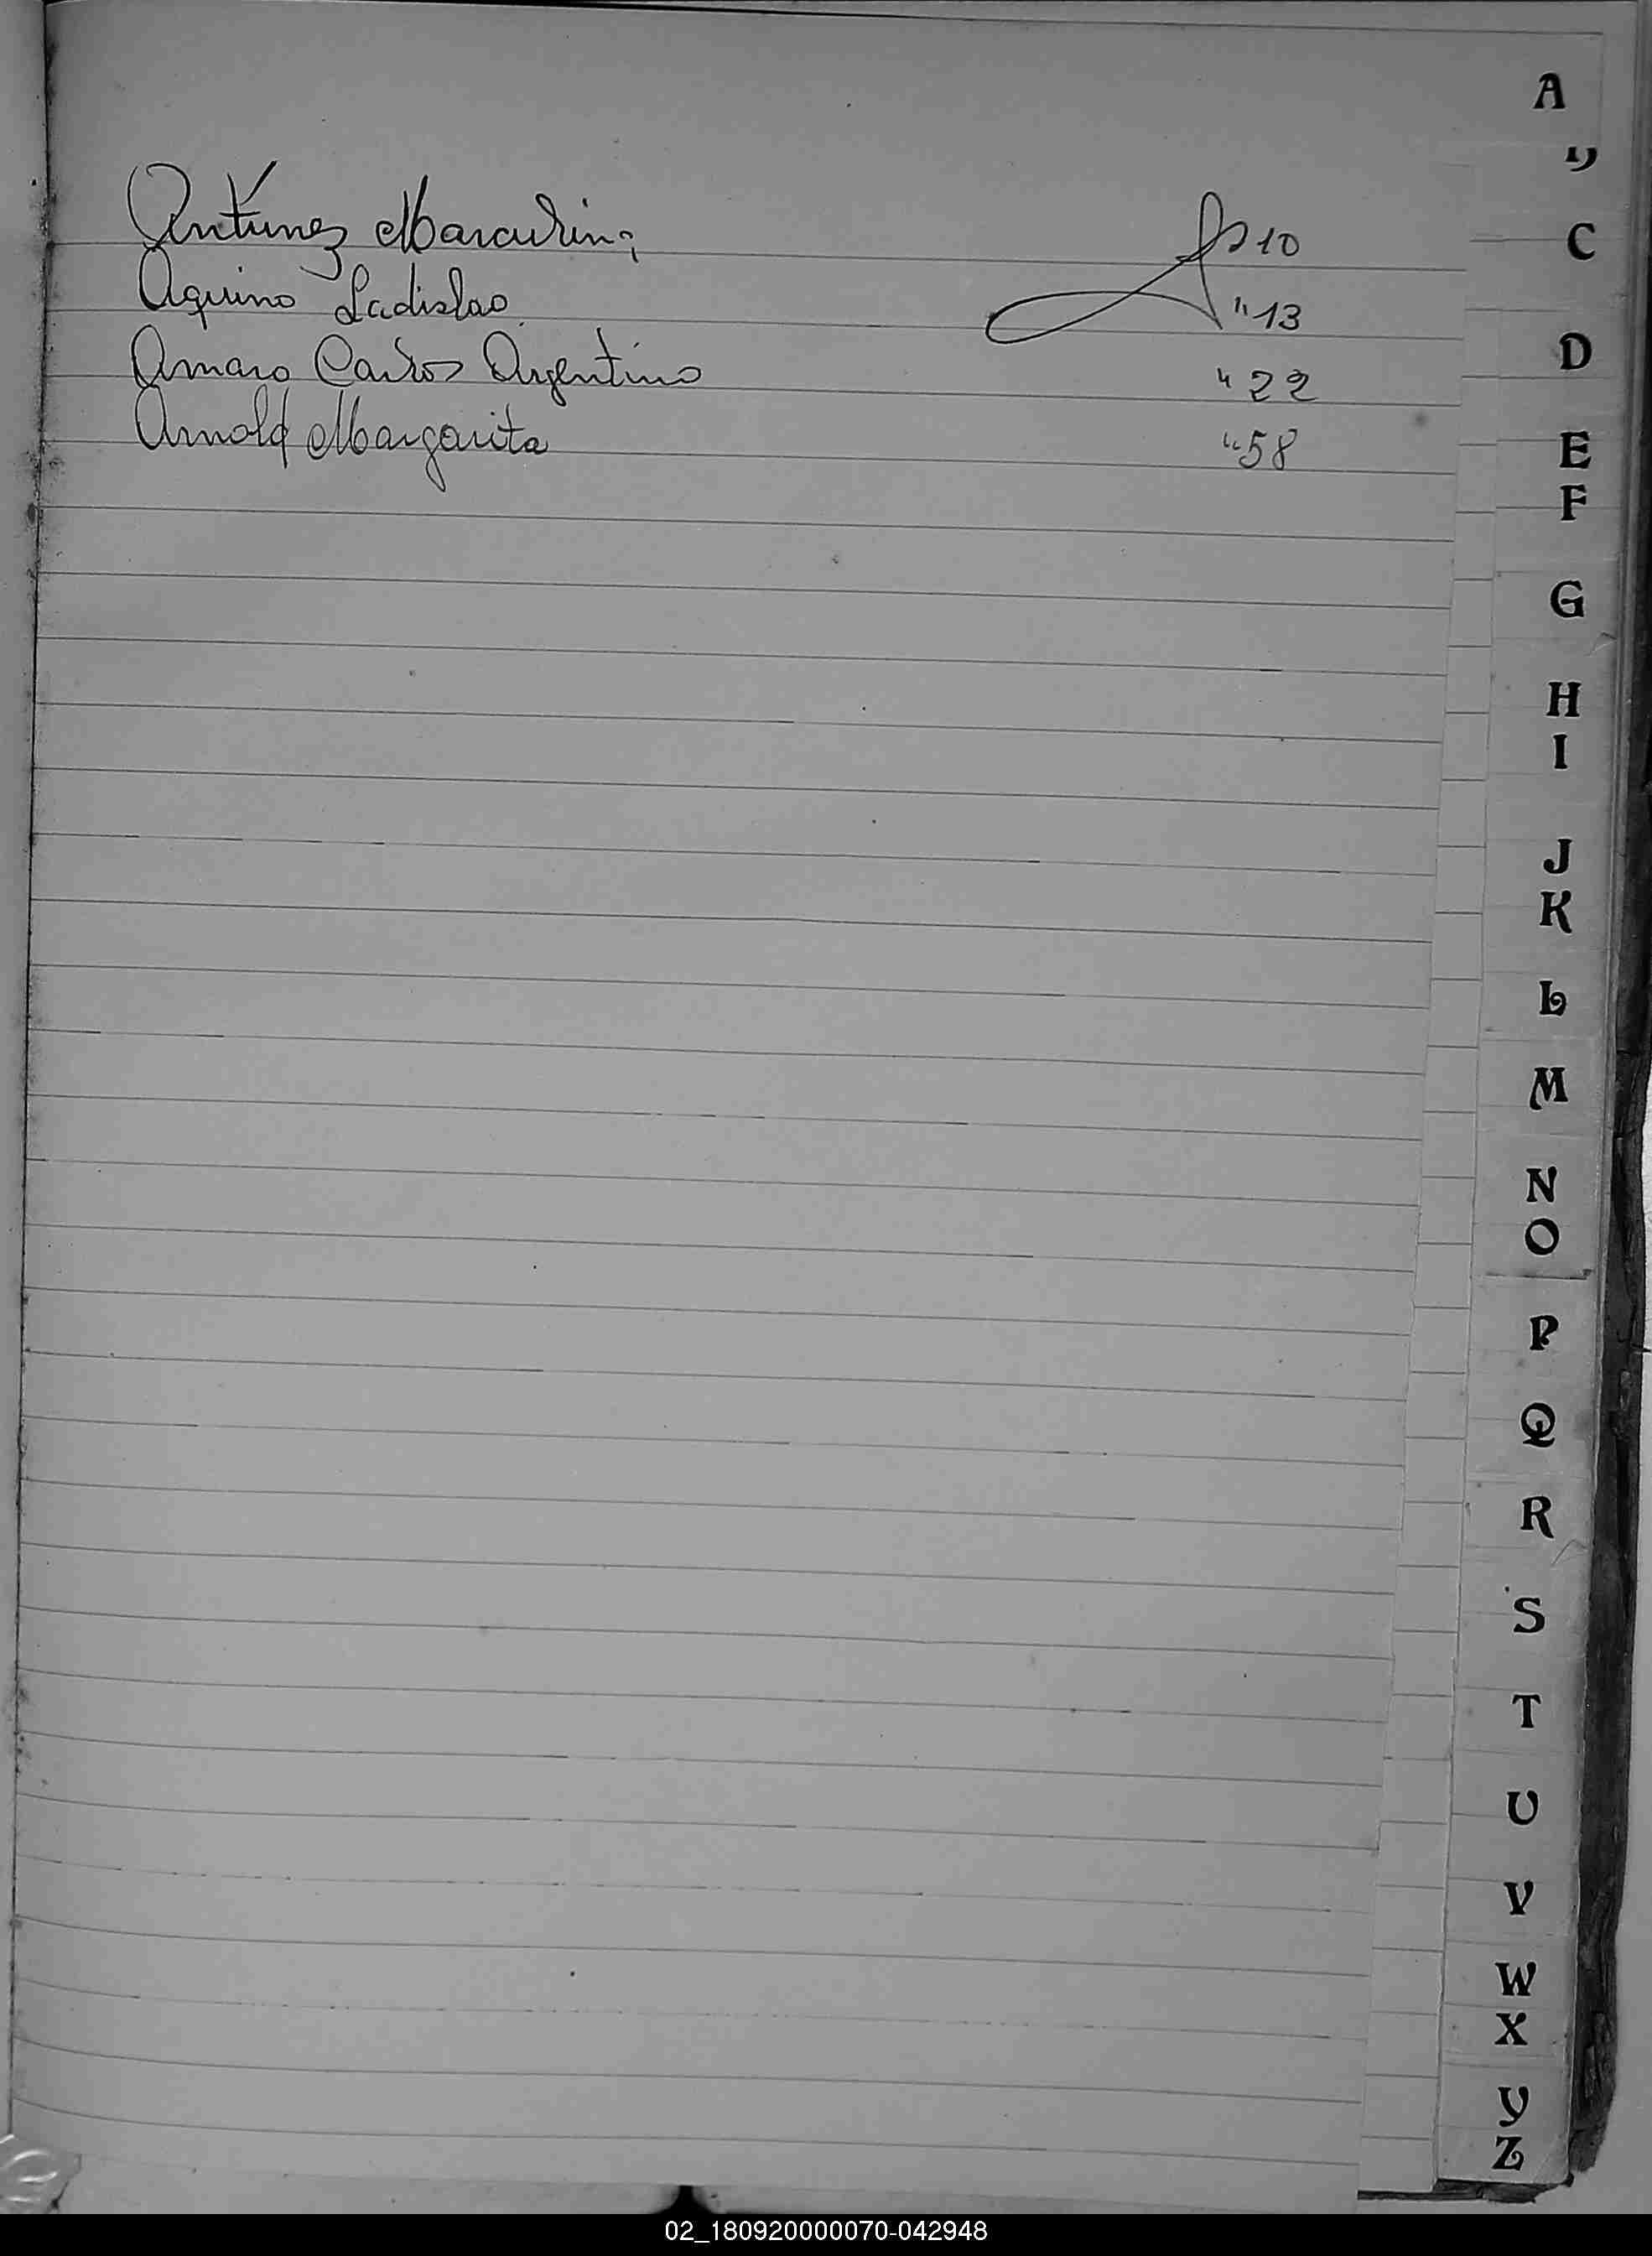 A
C
Antunez 10
Aquino Ladislao "13
D
Amaro Carlos Argentino "22
Arnold Margarita "58
E
F
G
H
I
J
K
L
M
N
O
P
Q
R
S
T
U
V
W
X
Y
Z
02_180920000070-042948